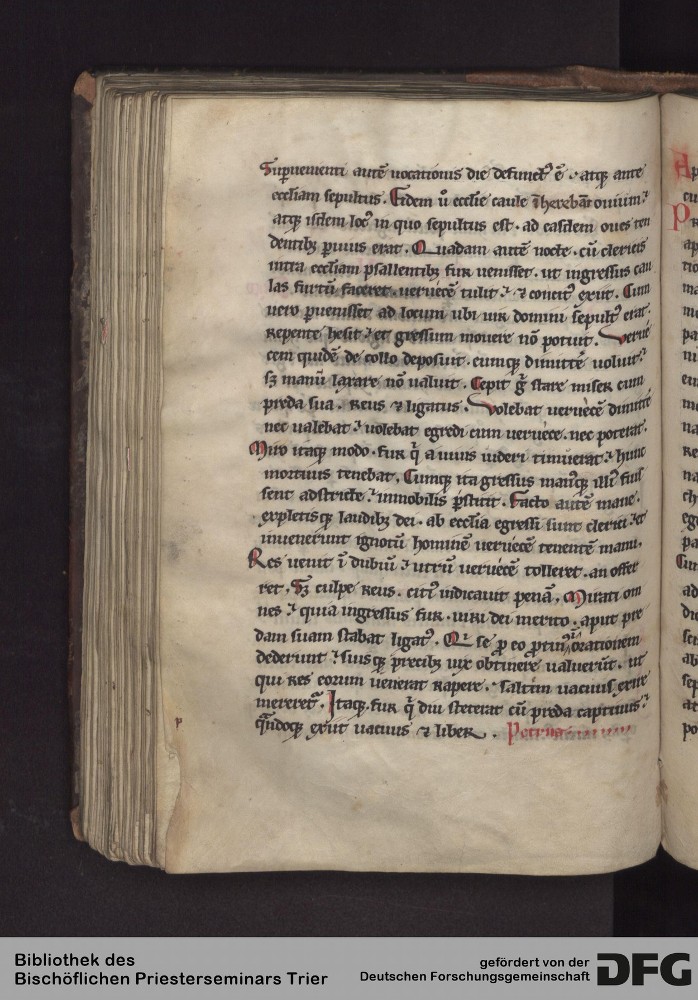 Supuenienti autē uocationis die defunctꝰ ē · atqꝫ ante
eccliam sepultus. Eidem ū ecclie caule īherebāt ouium ⁊
atqꝫ isdem locꝰ in quo sepultus est · ad easdem oues ten
dentibꝫ puius erat. Quadam autē nocte · cū clericis
intra eccliam psallentibꝫ fur uenisset · ut ingressus cau
las furtū faceret · ueruecē tulit ⁊ concitꝰ exiit. Cum
uero puenisset ad locum ubi uir domini sepultꝰ erat·
repente hesit ⁊ et gressum mouere nō potuit. Uerue
cem quidē de collo deposuit · eumqꝫ dimittē uoluit
sꝫ manū laxare nō ualuit. Cepit gͦ stare miser cum
preda sua · reus ⁊ ligatus. Uolebat ueruecē dimittē
nec ualebat ⁊ uolebat egredi cum ueruece · nec poterat.
Miro itaqꝫ modo · fur q̄ a uiuis uideri timuerat ⁊ hunc
mortuus tenebat. Cumqꝫ ita gressus manꝰqꝫ illiꝰ fuis
sent adstricte ⁊ immobilis pstitit. Facto autē mane ·
expletisqꝫ laudibꝫ dei · ab ecclia egressi sunt clerici ⁊ et
inuenerunt ignotū hominē ueruecē tenentē manu.
Res uenit ī dubiū ⁊ utrū ueruecē tolleret · an offer
ret. Sꝫ culpe reus · citiꝰ indicauit penā. Mirati om
nes ⁊ quia ingressus fur · uiri dei merito · aput pre
dam suam stabat ligatꝰ. Qui se p eo ptinꝰ ī orationem
dederunt ⁊ suisqꝫ precibꝫ uix obtinere ualuerūt · ut
qui res eorum uenerat rapere · saltim uacuus exire
mereret᷑. Itaqꝫ fur q̄ diu steterat cū preda captiuus ⁊
q̄ndoqꝫ exiit uacuus ⁊ liber. Petrus
Bibliothek des
Bischöflichen Priesterseminars Trier
gefördert von der
Deutschen Forschungsgemeinschaft
DFG